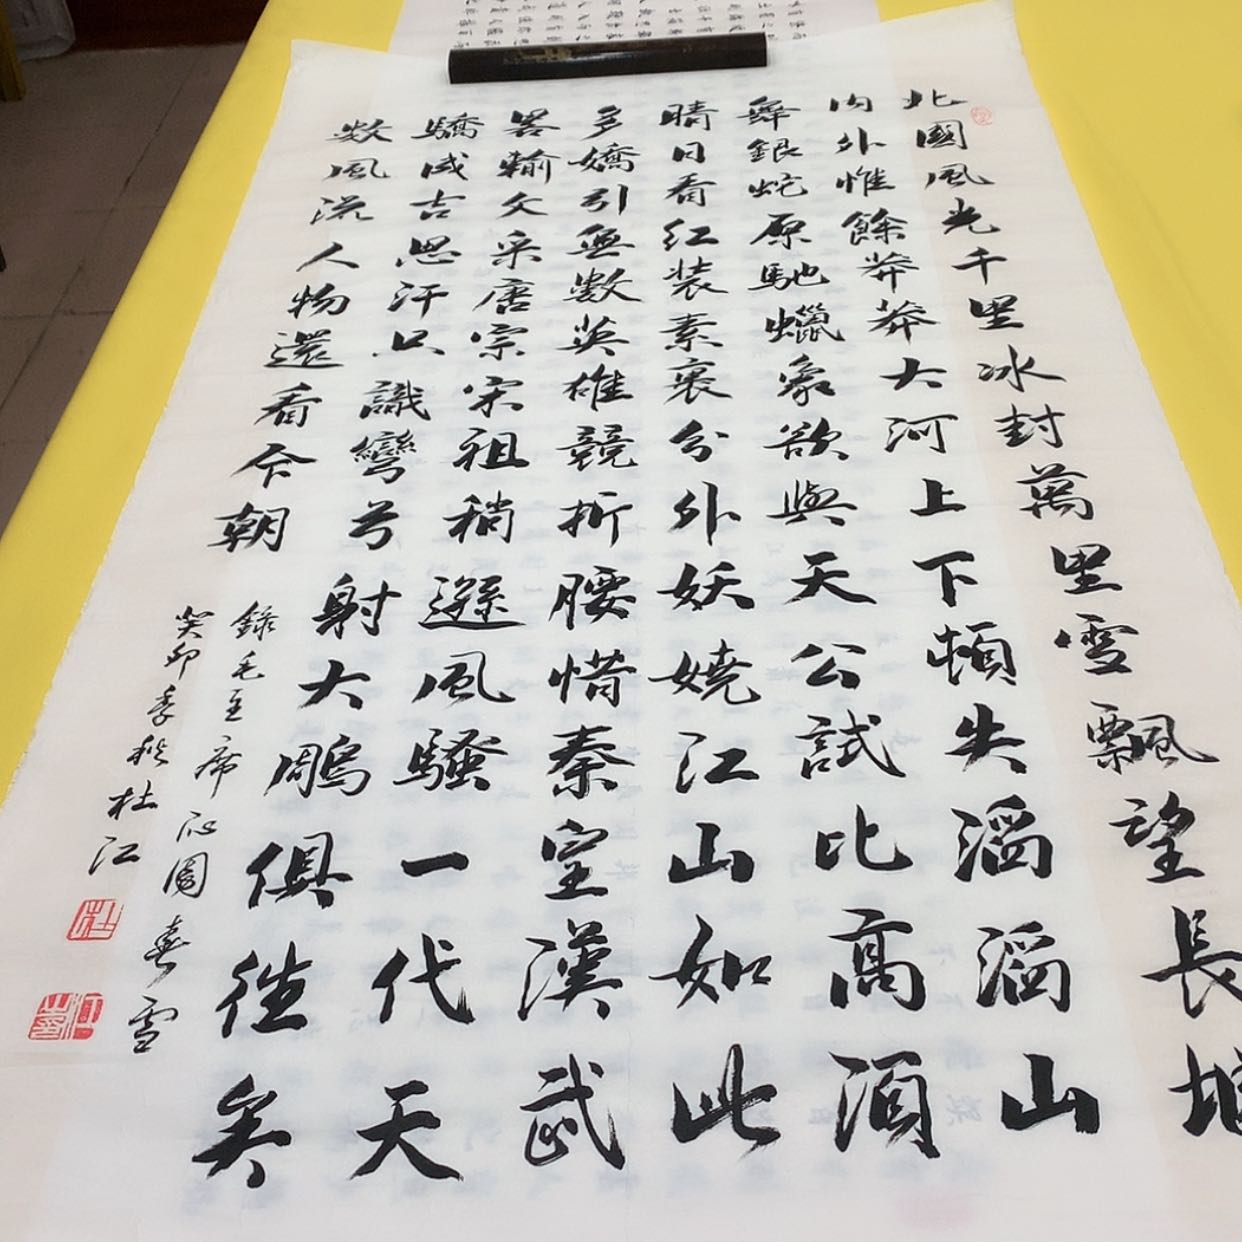 北國風光千里冰封萬里雪飄望長城
内外惟餘莽莽大河上下頓失滔滔山
舞銀蛇原馳蠟象欲與天公試比高須
晴日看紅装素裹分外妖嬈江山如此
多嬌引無數英雄競折腰惜秦皇漢武
畧輸文采唐宗宋祖稍遜風騷一代天
驕成吉思汗只識彎弓射大鵰俱往矣
数風流人物還看今朝
錄毛主席沁園春雪
癸卯季秋杜江